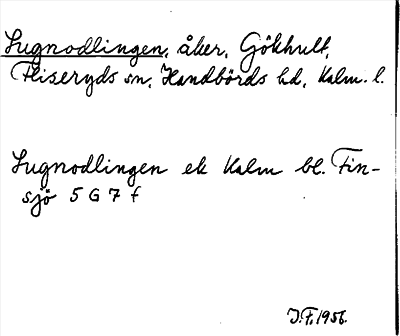 Lugnodlingen, åker, Gökhult,
Fliseryds sn, Handbörds hd, Kalm. l.
Lugnodlingen ek Kalm bl. Fin-
sjö 5 G 7 f
J.F. 1956.